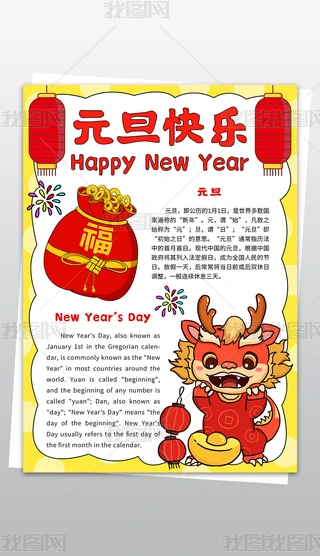 元旦快乐
Happy New Year
元旦
元旦，即公历的1月1日，是世界多数国
家通称的“新年”。元，谓“始”，凡数之
始称为“元”；旦，谓“日”；“元旦”即
“初始之日”的意思。“元旦”通常指历法
中的首月首日。现代中国的元旦，根据中国
政府将其列入法定假日，成为全国人民的节
日。放假一天，后常常将当日前或后双休日
调整，一般连续休息三天。
福
New Year's Day
New Year's Day, also known as
January 1st in the Gregorian calen-
dar, is commonly known as the "New
Year" in most countries around the
world. Yuan is called "beginning",
and the beginning of any number is
called "yuan"; Dan, also known as
"day"; "New Year's Day" means "the
day of the beginning". New Year's
Day usually refers to the first day of
the first month in the calendar.